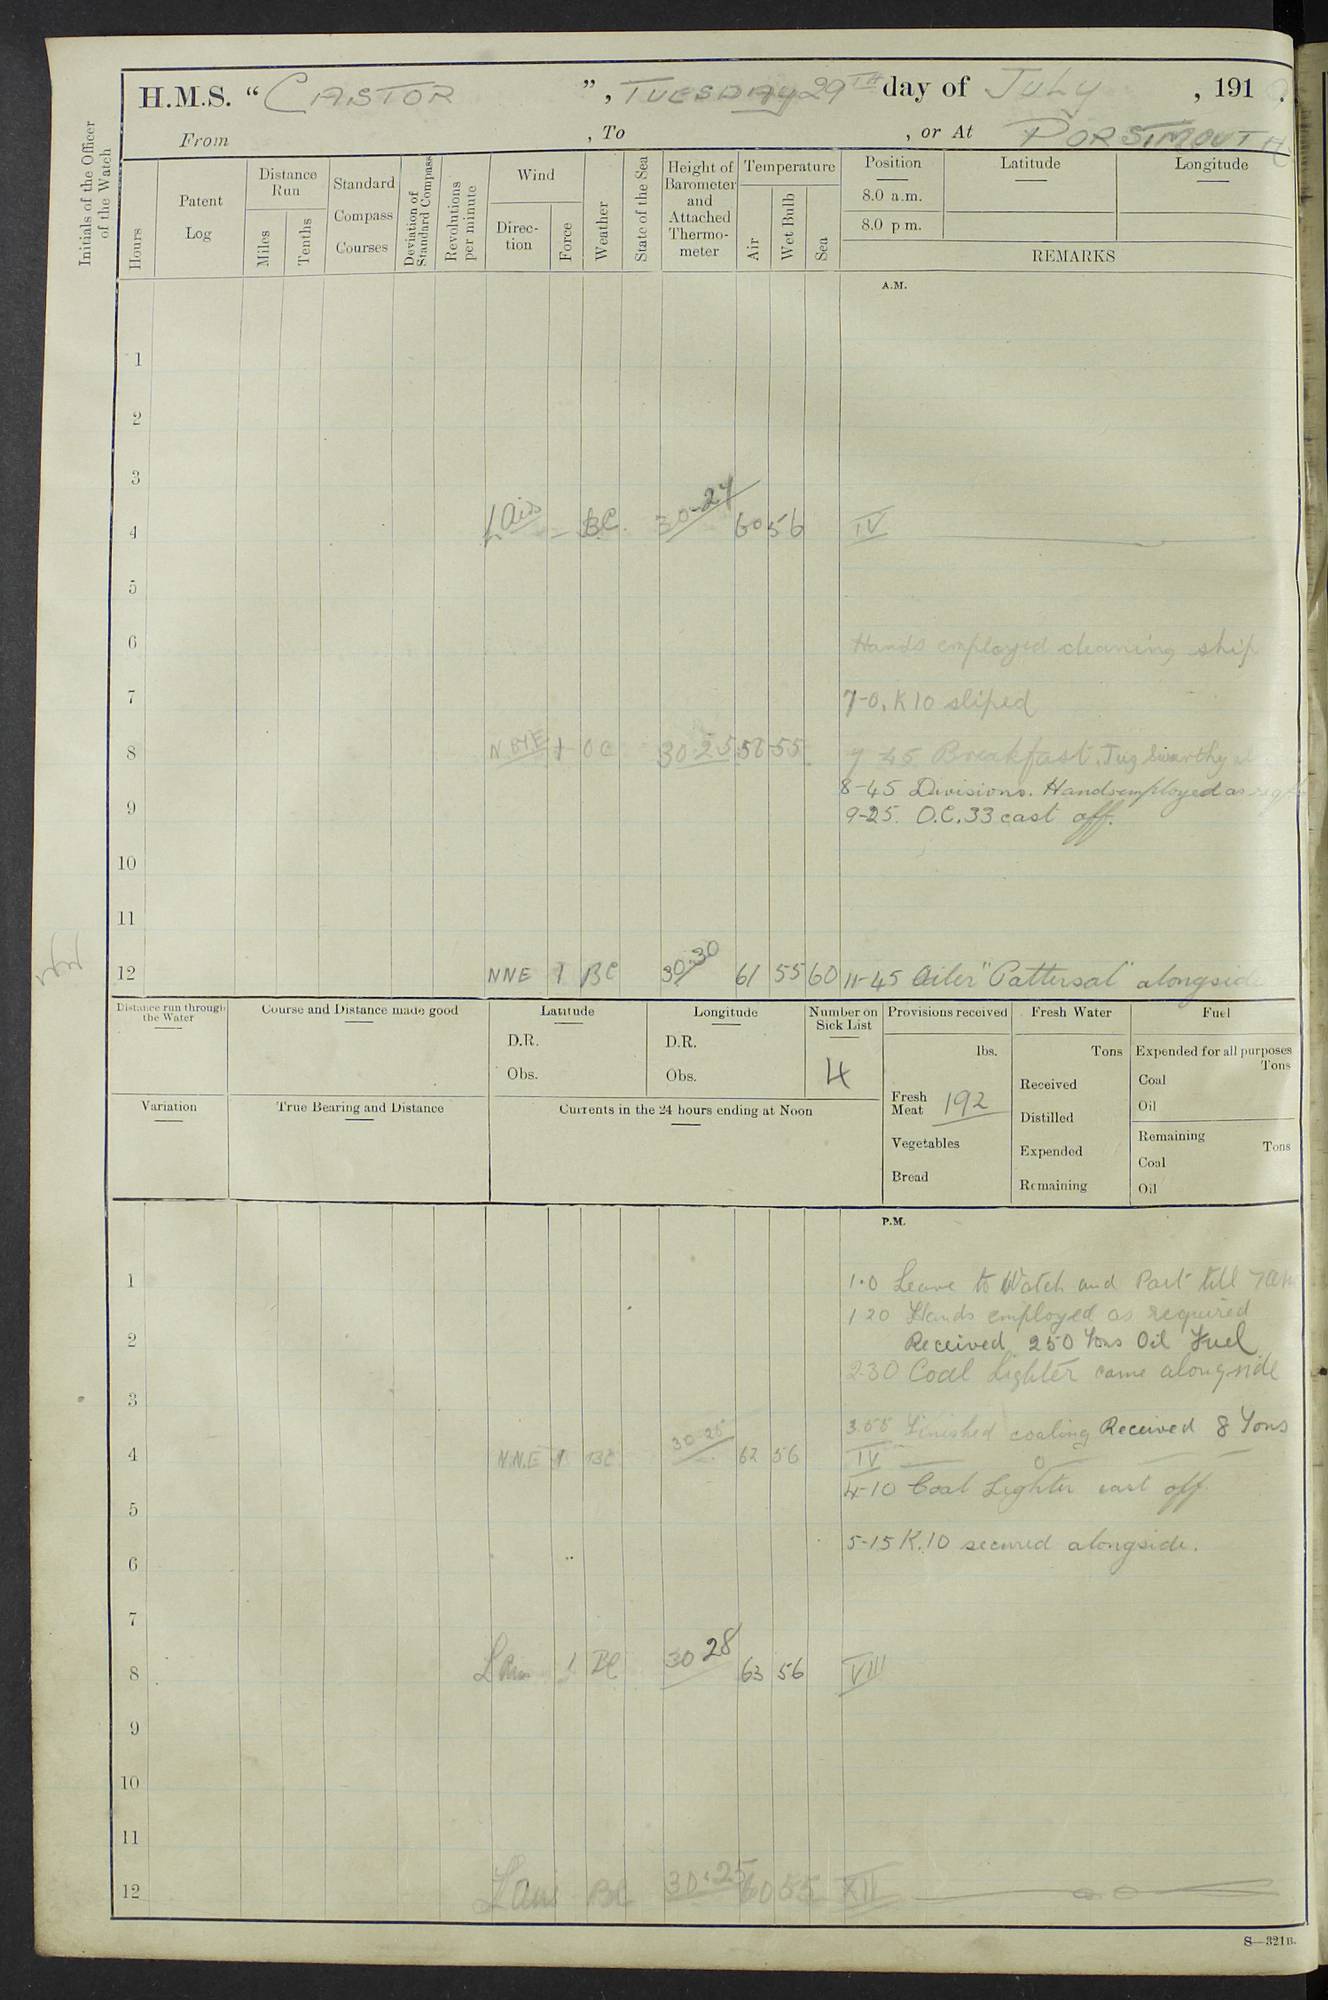 H.M.S. “CASTOR”, TUESDAY 29TH day of JULY, 191
From , To , or At PORSTMOUTH
Initials of the Officer of the Watch
Hours
Patent Log
Distance Run
Miles
Tenths
Standard Compass Courses
Deviation of Standard Compass
Revolutions per minute
Wind
Direction
Force
Weather
State of the Sea
Height of Barometer and Attached Thermometer
Temperature
Air
Wet Bulb
Sea
Position
8.0 a.m.
8.0 p.m.
Latitude
Longitude
REMARKS
A.M.
1
2
3
4 L Airs = BC. 30-27 60 56 IV
5
6 Hands employed cleaning ship
7 7-0. K10 sliped
8 N BYE 1 OC 30.25 56 55 7 45 Breakfast. Tug Swarthy
8-45 Divisions. Hands employed as
9 9-25. O.C.33 cast off.
10
11
12 NNE 1 BC 30.30 61 55 60 11-45 Oiler "Pattersal" alongside
Distance run through the Water
Course and Distance made good
Latitude
D.R.
Obs.
Longitude
D.R.
Obs.
Number on Sick List
4
Provisions received
lbs.
Fresh Meat 192
Vegetables
Bread
Fresh Water
Tons
Received
Distilled
Expended
Remaining
Fuel
Expended for all purposes
Tons
Coal
Oil
Remaining
Tons
Coal
Oil
Variation
True Bearing and Distance
Currents in the 24 hours ending at Noon
P.M.
1 1.0 Leave to Watch and Part till 7am
1 20 Hands employed as required
2 Received 250 Tons Oil Fuel
2-30 Coal Lighter came alongside
3 3.55 Finished coaling Received 8 Tons
4 N.N.E 1 BC 30.25 62 56 IV
4-10 Coal Lighter cast off
5
5-15 K.10 secured alongside.
6
7
8 L Airs 1 BC 30 28 63 56 VIII
9
10
11
12 L Airs BC 30.25 60 55 XII
S—321B.